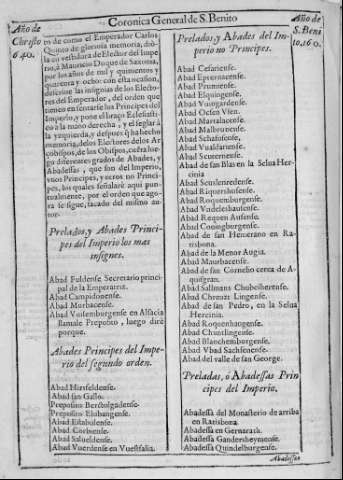 Coronica General de S. Benito
Año de
Christo
640.
Año de
S. Beni
to, 160.
to de como el Emperador Carlos
Quinto de gloriosa memoria, dio
la investidura de Elector del Impe-
rio, à Mauricio Duque de Saxonia,
por los años de mil y quinientos y
quarenta y ocho: con esta ocasion,
descriue las insignias de los Electo-
res del Emperador, del orden que
tienen en sentarse los Principes del
Imperio, y pone el braço Eclesiasti-
co à la mano derecha, y el seglar à
la yzquierda, y despues q̃ ha hecho
memoria, de los Electores de los Ar-
çobispos, de los Obispos, colealue-
go diferentes grados de Abades, y
Abadessas, que son del Imperio,
vnos Principes, y otros no Princi-
pes, los quales señalarè aqui pun-
tualmente, por el orden que ago-
ra se sigue, sacado del mismo au-
tor.
Prelados, y Abades Princi-
pes del Imperio los mas
insignes.
Abad Fuldense Secretario princi-
pal de la Emperatriz.
Abad Campidonense.
Abad Morbacense.
Abad Vuisemburgense en Alsacia
llamale Preposito, luego dirè
porque.
Abades Principes del Impe-
rio del segundo orden.
Abad Hirsfeldense.
Abad san Gallo.
Preposito Bertbolgadense.
Preposito Elubangense.
Abad Estabulense.
Abad Corbiense.
Abad Salueldense.
Abad Vuerdense en Vuestfalia.
Prelados, y Abades del Im-
perio no Principes.
Abad Cesariense.
Abad Epternacense.
Abad Prumiense.
Abad Elquingense.
Abad Vuingardense.
Abad Ocsen Vsen.
Abad Marsaliacense.
Abad Malbrunense.
Abad Schafusense.
Abad Vualdsachsense.
Abad Scuternense.
Abad de san Blas en la Selua Her-
cinia
Abad Scuslenredense.
Abad Riquershusense.
Abad Roquemburgense.
Abad Vudeleshausense.
Abad Requen Ausense.
Abad Coningburgense.
Abad de san Hemerano en Ra-
tisbona.
Abad de la Menor Augia.
Abad Maurbacense.
Abad de san Cornelio cerca de A-
quisgran.
Abad Sallmans Chubeihertense.
Abad Chremz Lingense.
Abad de san Pedro, en la Selua
Hercinia.
Abad Roquenhaugense.
Abad Chunslingense.
Abad Blanchemburgense.
Abad Vbad Sachsenense.
Abad del valle de san George.
Preladas, ò Abadessas Prin
cipes del Imperio.
Abadessa del Monasterio de arriba
en Ratisbona.
Abadessa en Gernarath.
Abadessa Gandersheymense.
Abadessa Quindelburgense.
Abadessa